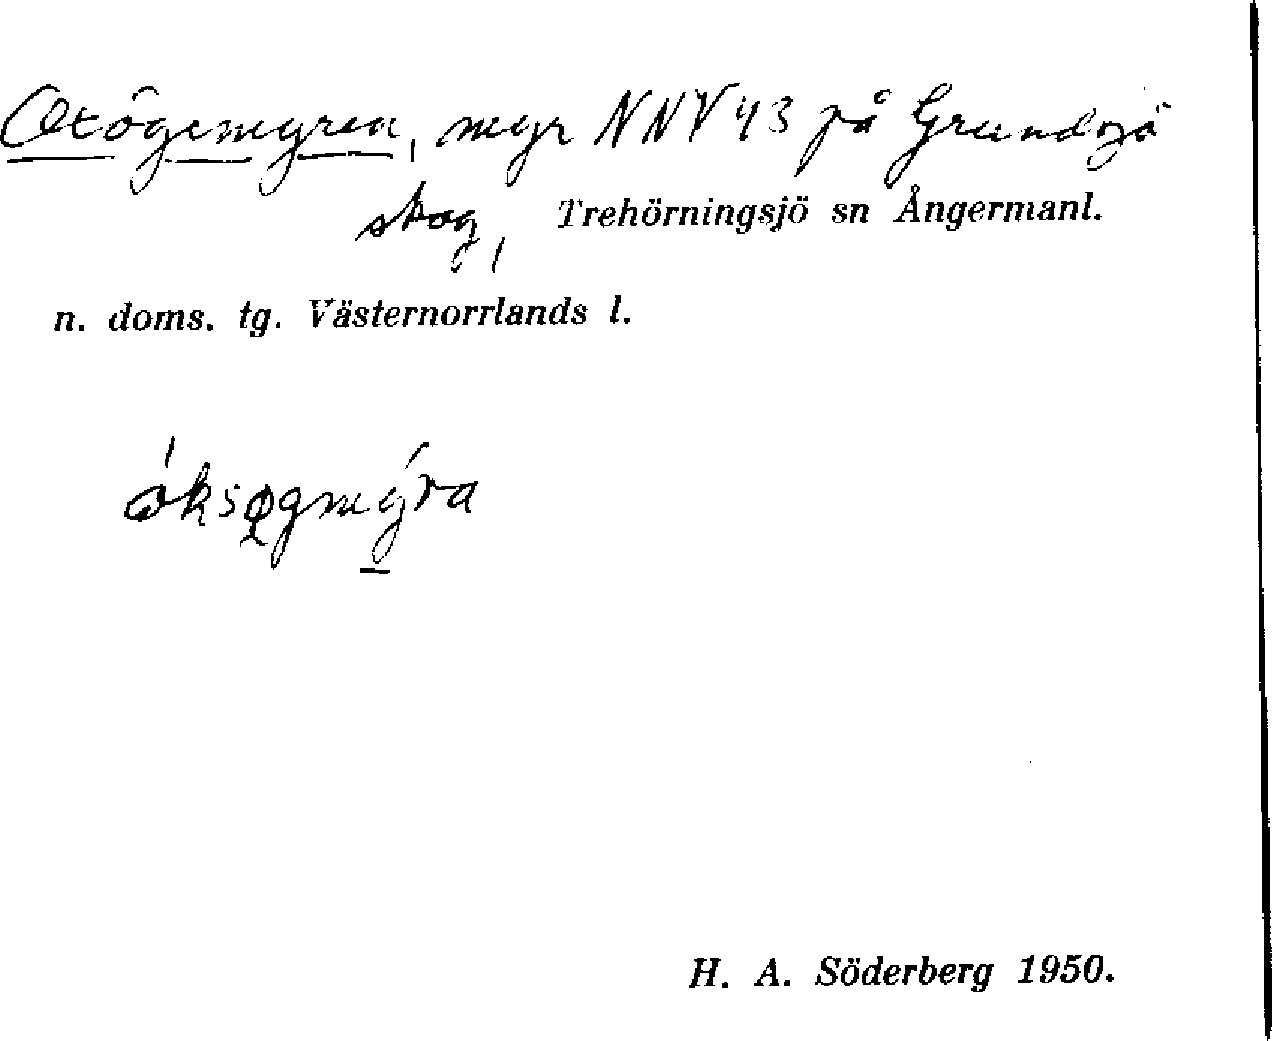 Oxögemyren, myr NNV 43 på Grundsjö
skog, Trehörningsjö sn Ångermanl.
n. doms. tg. Västernorrlands l.
H. A. Söderberg 1950.